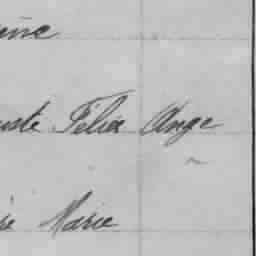 uste Félix Ange
re Marie